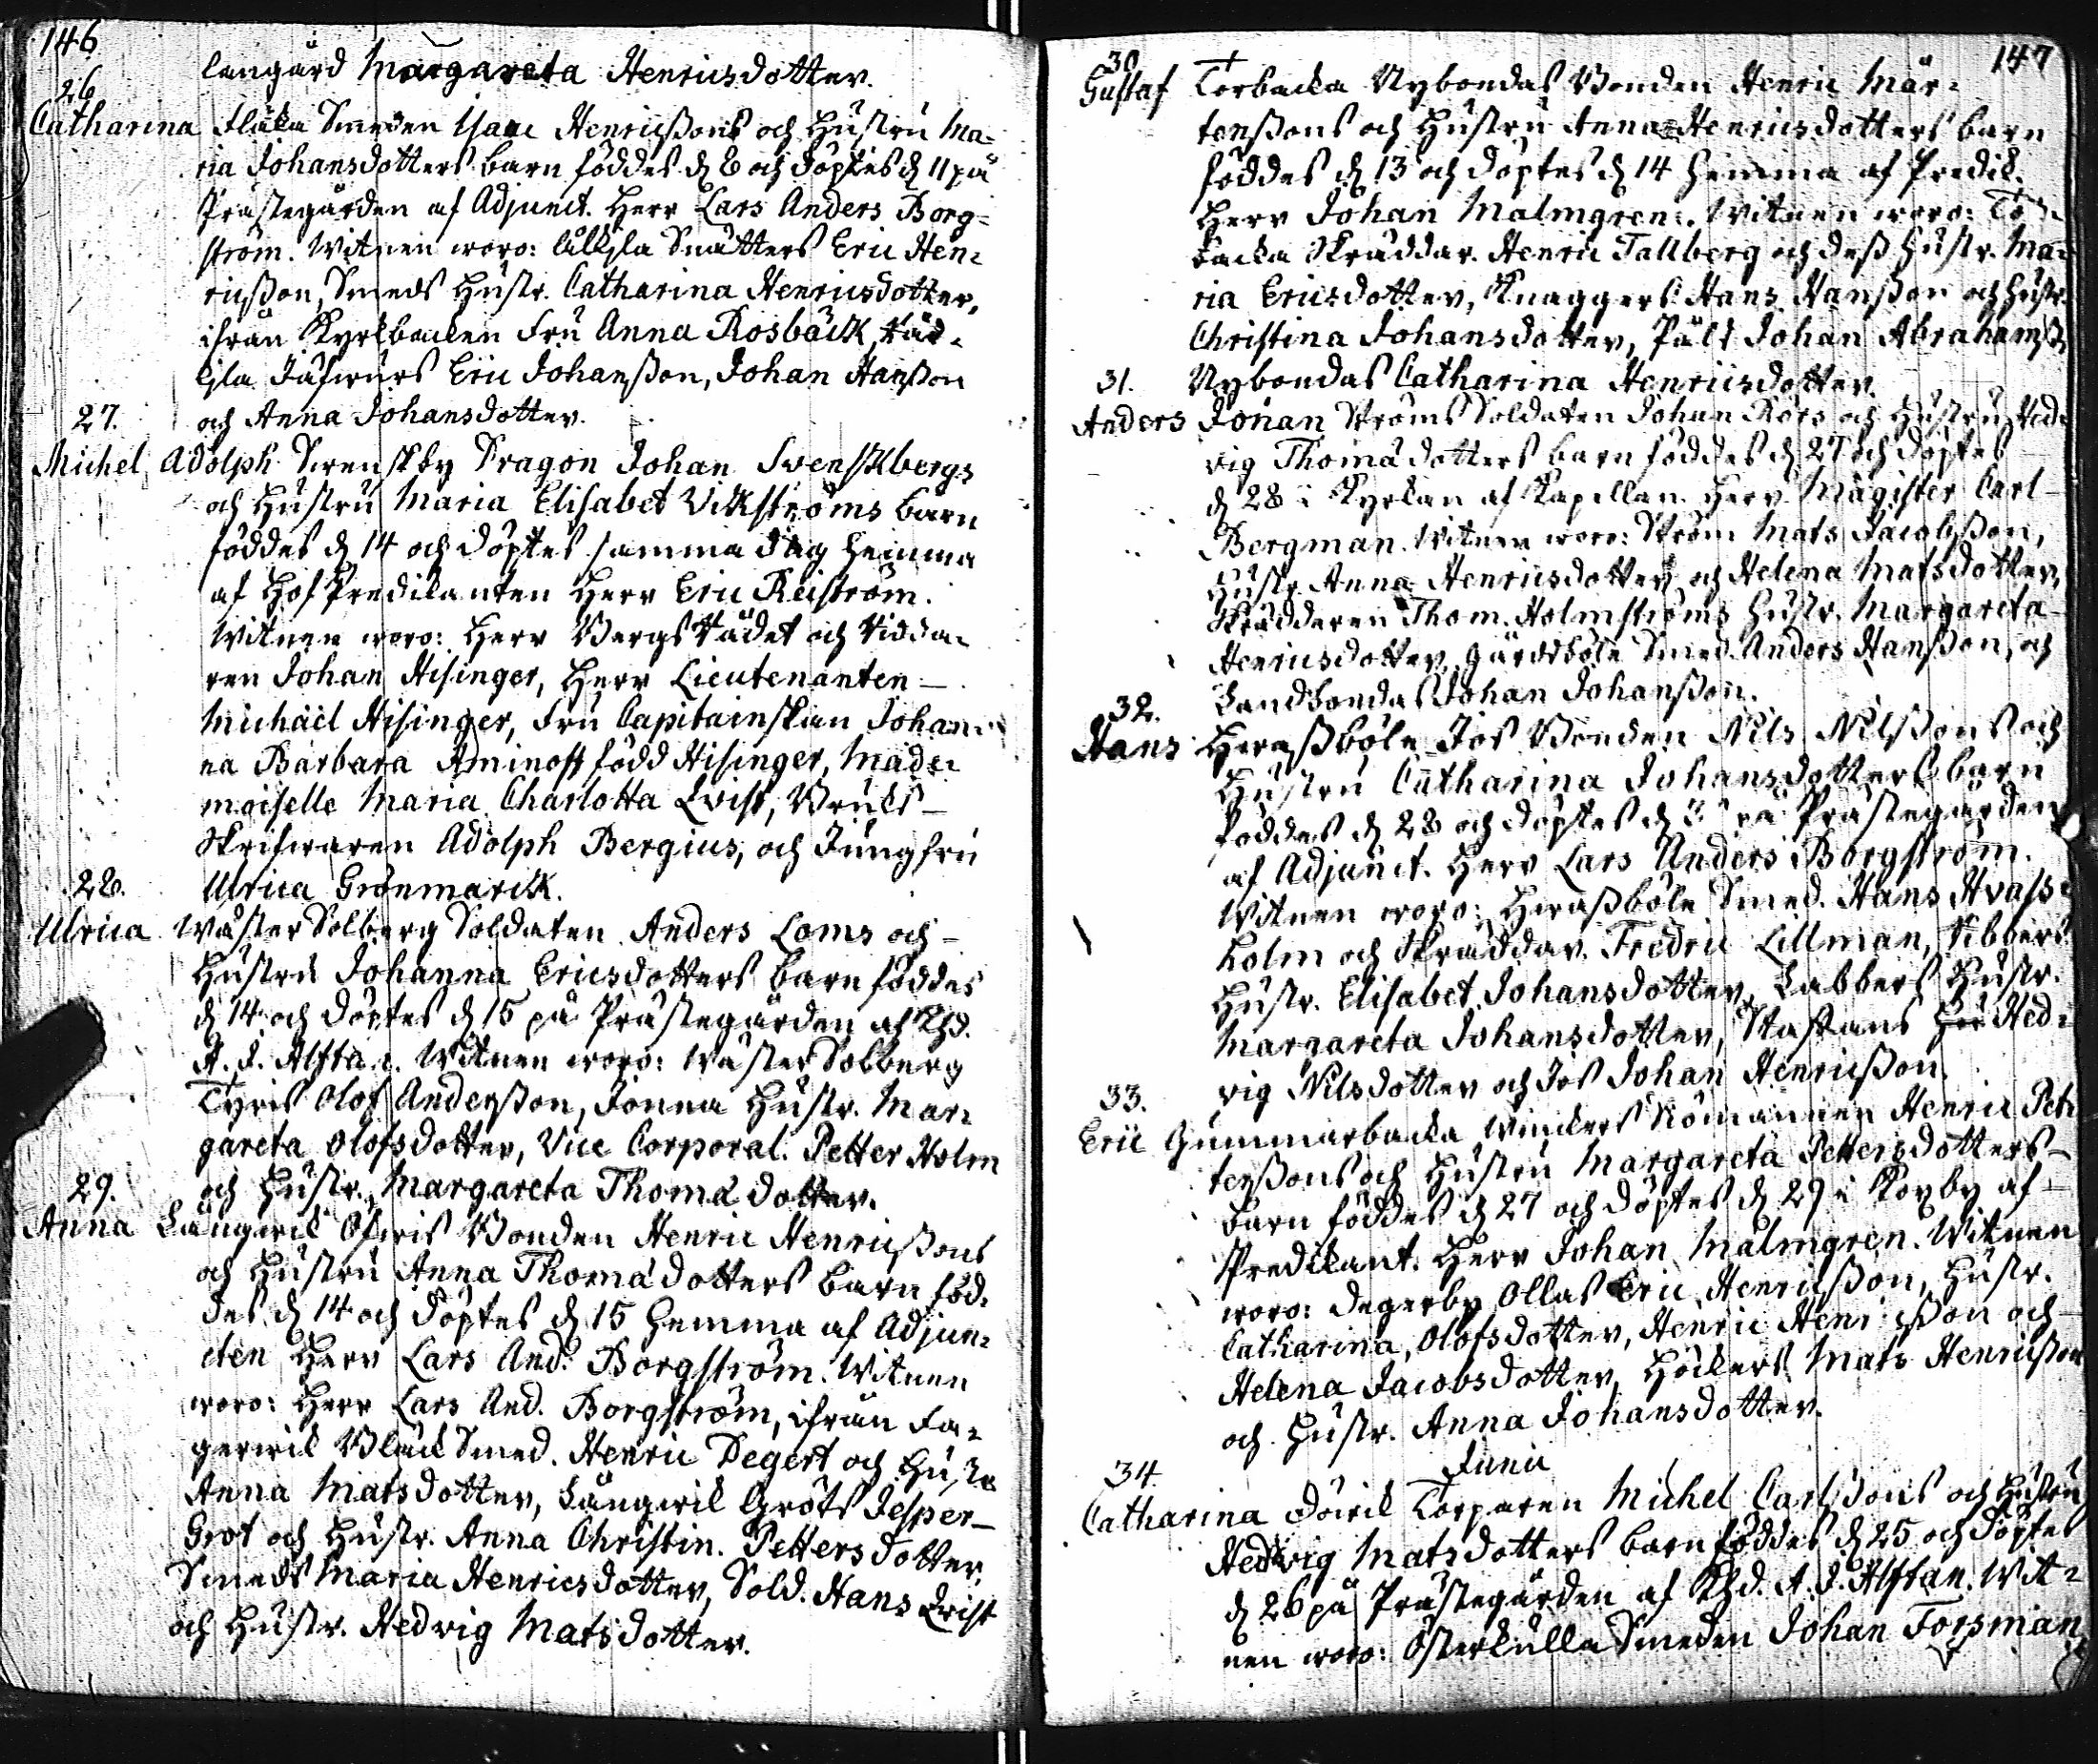 146
langård Margareta Henricsdotter.
26
Catharina Flåka Smeden Isaac Henricßons och Hustru Ma-
ria Johansdotters barn föddes d 6 och döptes d 11 på
Prästegården af Adjunct. Herr Lars Anders Borg=
ström. Witnen woro: Snätters Eric Hen=
ricßon, Smeds Hustr. Catharina Henricsdotter,
ifrån Kyrkbacken Fru Anna Rosbäck, Räd-
kjla Jäfwurs Eric Johanßon, Johan Hanßon
27. och Anna Johansdotter.
Michel Adolph Svenskby Dragon Johan Svenskbergs
och Hustru Maria Elisabet Vikströms barn
föddes d 14 och döptes samma dag hemma
af HofPredikanten Herr Eric Reiström.
Witnen woro: Herr BergsRådet och Ridda-
ren Johan Hisinger, Herr Lieutenanten
Michaël Hisinger, Fru Capitainskan Johan-
na Barbara Aminoff född Hisinger, Made-
moiselle Maria Charlotta Qvist, Bruks
Skrifwaren Adolph Bergius, och Jungfru
28. Ulrica Grönmarck.
Ulrica Wäster Solberg Soldaten Anders Loms och
Hustru Johanna Ericsdotters barn föddes
d 14 och döptes d 15 på Prästegården af Khd.
A. J. Alftan. Witnen woro: Wäster Solberg
Tyris Olof Anderßon, Jonna Hustr. Mar=
gareta Olofsdotter, Vice Corporal. Petter Holm
29. och Hustr. Margareta Thomadotter.
Anna Långwik Öfwis Bonden Henric Henricßons
och Hustru Anna Thomadotters barn föd-
des d 14 och döptes d 15 hemma af Adjun-
cten Herr Lars And. Borgström. Witnen
woro: Herr Lars And. Borgström, ifrån Fa-
gerwik Bläck Smed. Henric Degert och Hustr
Anna Matsdotter, Långwik Gröts Jesper
Grot och Hustr. Anna Christin. Pettersdotter,
Smeds Maria Henricsdotter, Sold. Hans Qvist
och Hustr. Hedvig Matsdotter.
147
30
Gustaf Torbacka Nybondas Bonden Henric Mår=
tenßons och Hustru Anna Henricsdotters barn
föddes d 13 och döptes d 14 hemma af Predik.
Herr Johan Malmgren. Witnen woro: To
backa Skräddar. Henric Tallberg och deß Hustr. Ma=
ria Ericsdotter, Knaggers Hans Hanßon och Hustr.
Christina Johansdotter, Påls Johan Abrahamß
31. Nybondas Catharina Henricsdotter.
Anders Johan Ströms Soldaten Johan Rörs och Hustru Hed-
vig Thomadotters barn föddes d 27 och döptes
d 28 i Kyrkan af Kapellan. Herr Magister Carl
Bergman. Witnen woro: Ström Mats Jacobßon,
Hustr. Anna Henricsdotter och Helena Matsdotter,
Skrädderen Thom. Holmströms Hustr. Margareta
Henricsdotter, Gårdsböle Smed. Anders Hanßon, och
Landbondas Johan Johanßon.
32.
Hans Hwaßböle Jos Bonden Nils Nilßons och
Hustru Catharina Johansdotters barn
föddes d 28 och döptes d på Prästegården
af Adjunct. Herr Lars Anders Borgström.
Witnen woro: Hwaßböle Smed. Hans Hvass-
holm och Skräddar. Fredric Lillman, Ribbers
Hustr. Elisabet Johansdotter, Labbers Hustr.
Margareta Johansdotter, Staffans Hed=
vig Nilsdotter och Jos Johan Henricßon.
33.
Eric Gummarbacka Winckers Romannen Henric Pet
terßons och Hustru Margareta Pettersdotters
barn föddes d 27 och döptes d 29 i Koxby af
Predikant. Herr Johan Malmgren. Witnen
woro: Degerby Ollas Eric Henricßon, Hustr.
Catharina Olofsdotter, Henric Henricßon och
Helena Jacobsdotter, Höckers Mats Henricßon
och Hustr. Anna Johansdotter.
Junii
34.
Catharina Döwik Torparen Michel Carlßons och Hustru
Hedvig Matsdotters barn föddes d 25 och döptes
d 26 på Prästegården af Khd. A. J. Alftan. Wit=
nen woro: Österkulla Smeden Johan Forsman